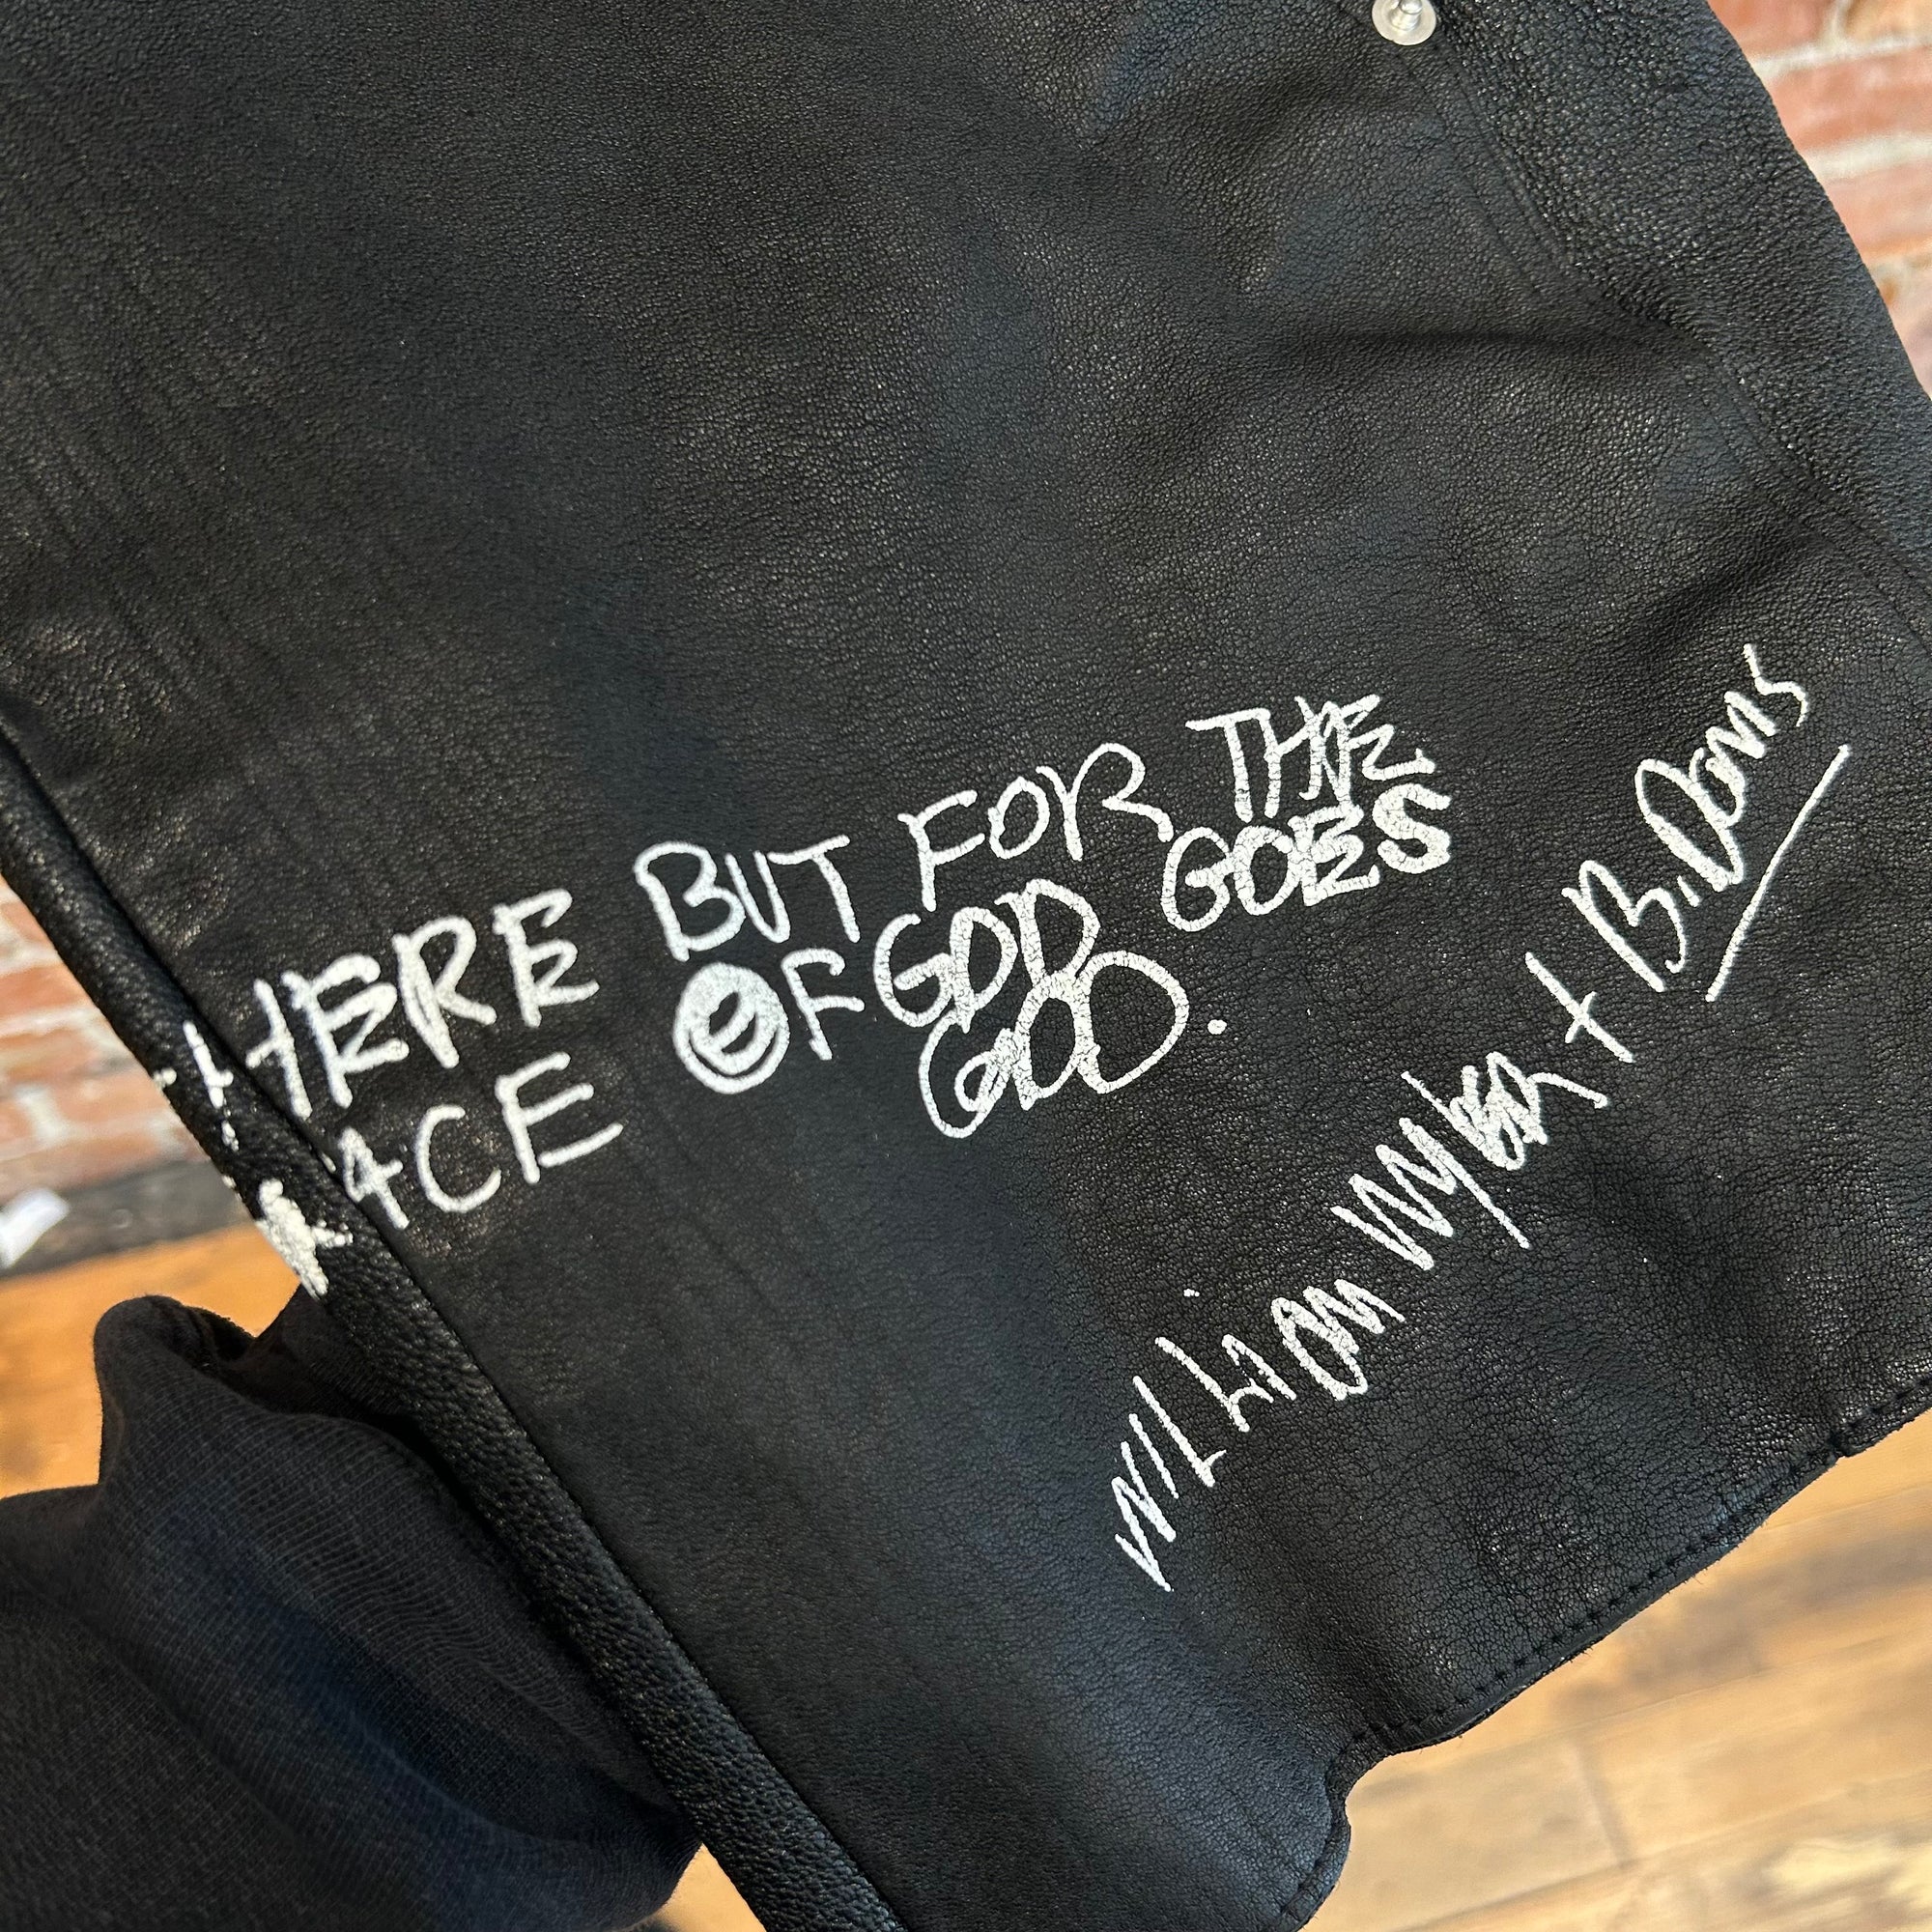 THERE BUT FOR THE
GRACE OF GOD GOES
GOD.
William + B. Davis